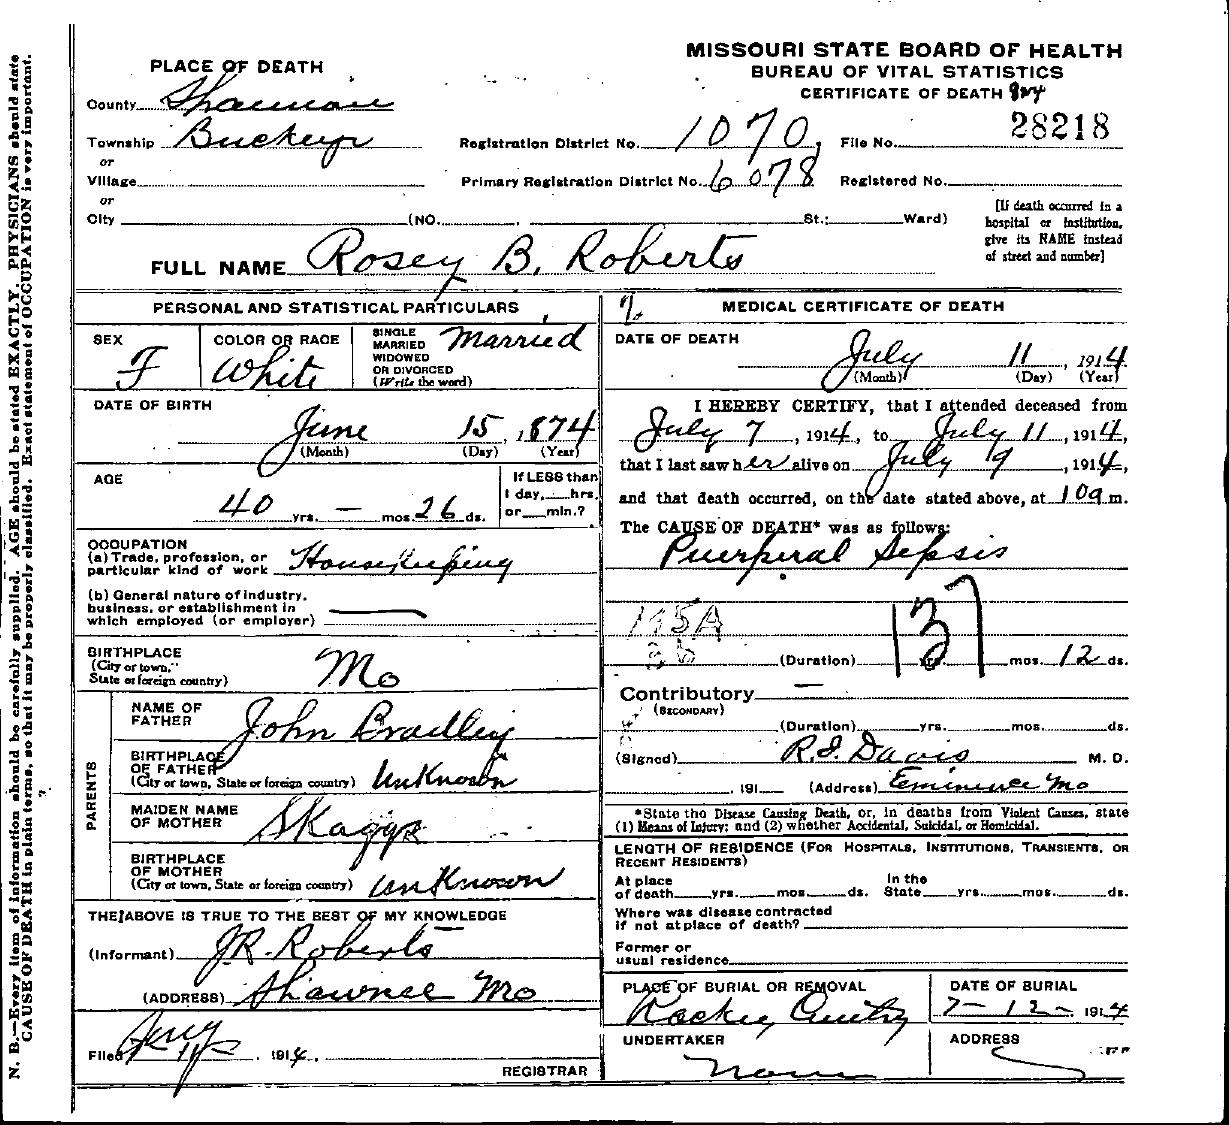 MISSOURI STATE BOARD OF HEALTH
BUREAU OF VITAL STATISTICS
CERTIFICATE OF DEATH
PLACE OF DEATH
County Shannon
Township
or
Village
or
City (NO. St.; Ward)
Registration District No. 1070
Primary Registration District No. 6078
File No. 28218
Registered No.
[If death occurred in a
hospital or institution,
give its NAME instead
of street and number]
FULL NAME Rosey B. Roberts
PERSONAL AND STATISTICAL PARTICULARS
SEX F
COLOR OR RACE White
SINGLE
MARRIED
WIDOWED
OR DIVORCED
(Write the word)
Married
DATE OF BIRTH
June 15, 1874
(Month) (Day) (Year)
AGE
40 yrs. — mos. 26 ds.
If LESS than
1 day, hrs.
or min.?
OCCUPATION
(a) Trade, profession, or
particular kind of work Housekeeping
(b) General nature of industry,
business, or establishment in
which employed (or employer)
BIRTHPLACE
(City or town,
State or foreign country) Mo
PARENTS
NAME OF
FATHER John Bradley
BIRTHPLACE
OF FATHER
(City or town, State or foreign country) UnKnown
MAIDEN NAME
OF MOTHER Skaggs
BIRTHPLACE
OF MOTHER
(City or town, State or foreign country) UnKnown
THE ABOVE IS TRUE TO THE BEST OF MY KNOWLEDGE
(Informant) J.R. Roberts
(ADDRESS) Shawnee Mo
Filed 1914,
REGISTRAR
MEDICAL CERTIFICATE OF DEATH
DATE OF DEATH
July 11, 1914
(Month) (Day) (Year)
I HEREBY CERTIFY, that I attended deceased from
July 7, 1914, to July 11, 1914,
that I last saw her alive on July 9, 1914,
and that death occurred, on the date stated above, at 10a m.
The CAUSE OF DEATH* was as follows:
Puerperal Sepsis
137
(Duration) yrs. mos. 12 ds.
Contributory —
(SECONDARY)
(Duration) yrs. mos. ds.
(Signed) R.I. Davis M. D.
, 191 (Address) Eminence Mo
*State the Disease Causing Death, or, in deaths from Violent Causes, state
(1) Means of Injury; and (2) whether Accidental, Suicidal, or Homicidal.
LENGTH OF RESIDENCE (FOR HOSPITALS, INSTITUTIONS, TRANSIENTS, OR
RECENT RESIDENTS)
At place
of death yrs. mos. ds.
In the
State yrs. mos. ds.
Where was disease contracted
if not at place of death?
Former or
usual residence
PLACE OF BURIAL OR REMOVAL
DATE OF BURIAL
7-12- 1914
UNDERTAKER
ADDRESS
N. B.—Every item of information should be carefully supplied. AGE should be stated EXACTLY. PHYSICIANS should state
CAUSE OF DEATH in plain terms, so that it may be properly classified. Exact statement of OCCUPATION is very important.